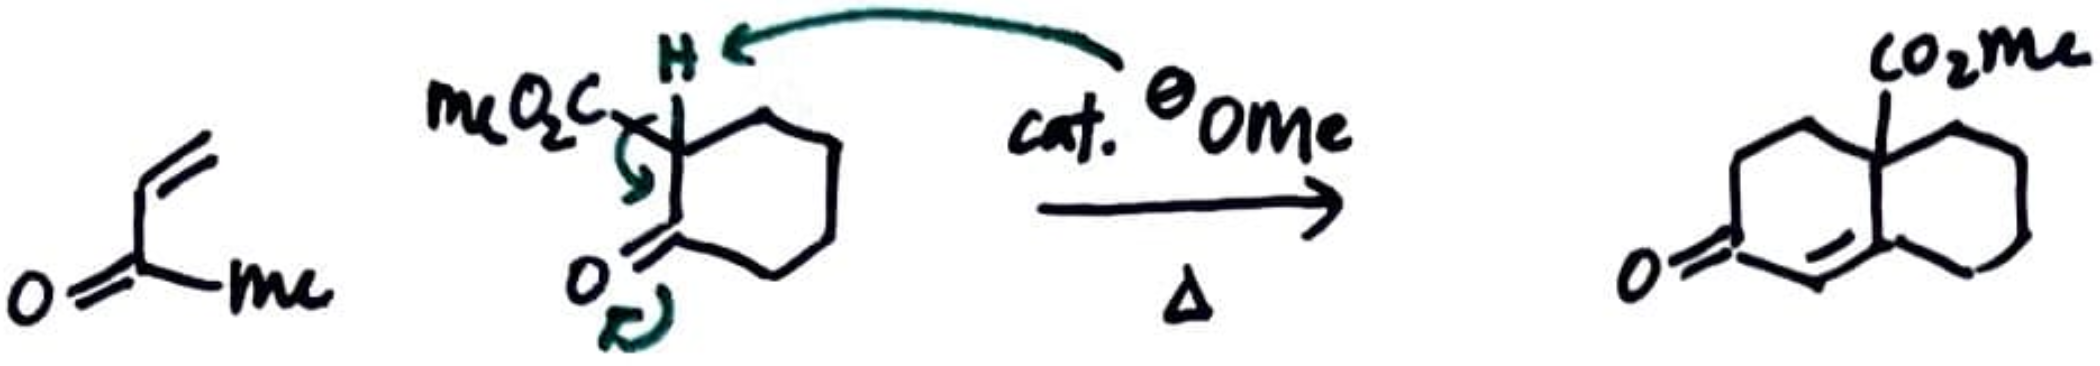 O Me
MeO₂C H
O
cat. ⊖OMe
Δ
CO₂Me
O